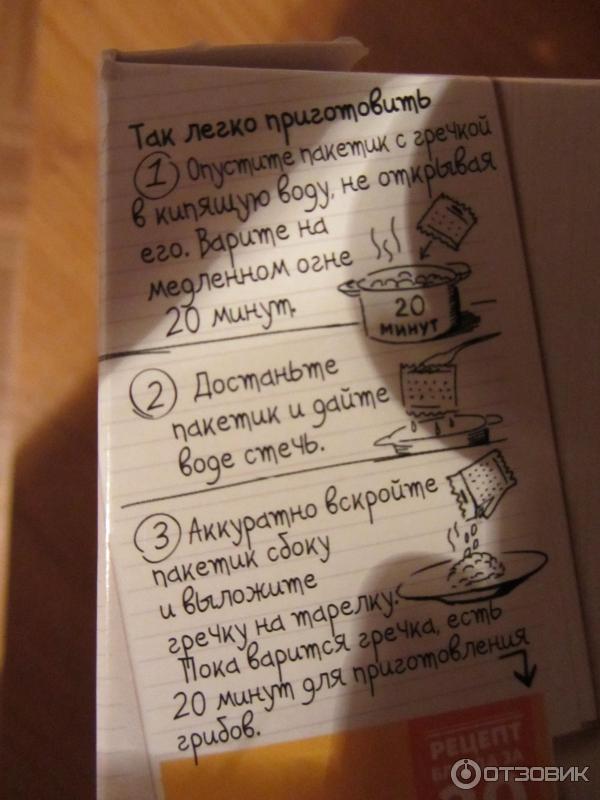 Так легко приготовить
1 Опустите пакетик с гречкой
в кипящую воду, не открывая
его. Варите на
медленном огне
20 минут.
20
минут
2 Достаньте
пакетик и дайте
воде стечь.
3 Аккуратно вскройте
пакетик сбоку
и выложите
гречку на тарелку.
Пока варится гречка, есть
20 минут для приготовления
грибов.
РЕЦЕПТ
ЗА
ОТЗОВИК